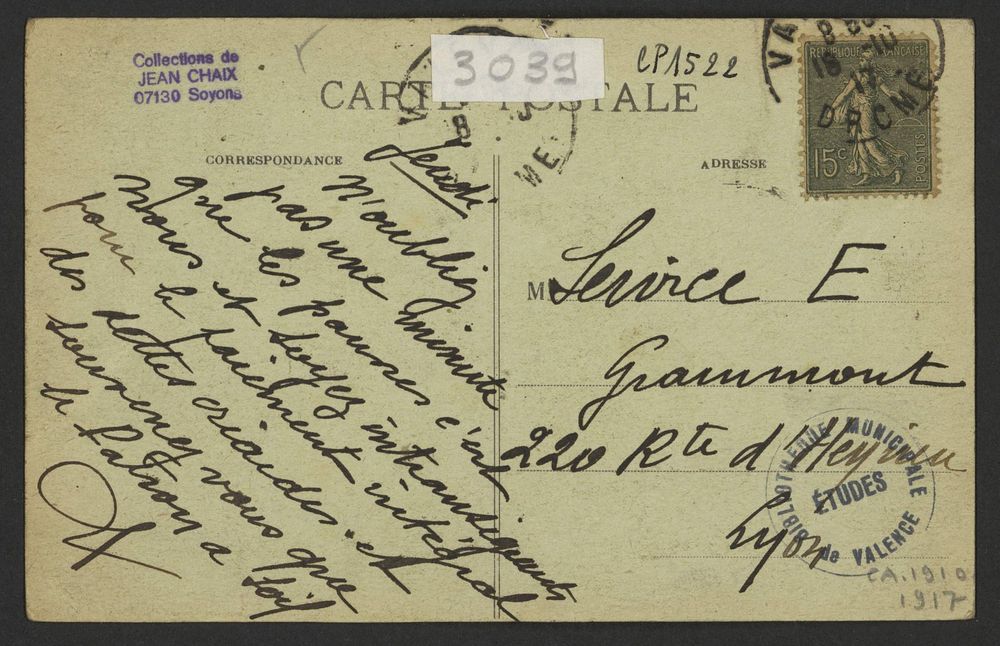 Collections de
JEAN CHAIX
07130 Soyons
3039
CP1522
CARTE POSTALE
CORRESPONDANCE
ADRESSE
REPUBLIQUE FRANÇAISE
15c
POSTES
DROME
Jeudi
N'oubliez
pas une minute
que les pauvres c'est
nous et soyez intransigeants
pour le paiement intégral
des dettes criardes et
souvenez vous que
le Patron a soif
M
Service E
Grammont
220 Rte d'Heyrieu
Lyon
BIBLIOTHEQUE MUNICIPALE
ÉTUDES
de VALENCE
CA.1910
1917